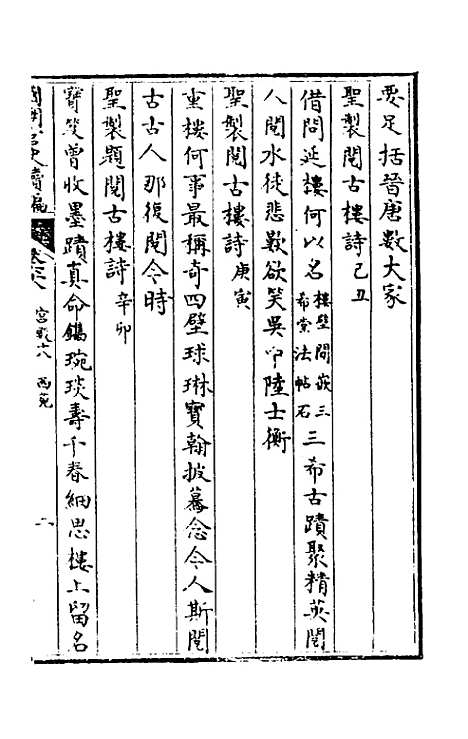 要足括晉唐數大家
聖製閱古樓詩己丑
借問延樓何以名樓壁間嵌三希堂法帖石三希古蹟聚精英閱
人閱水徒悲歎欲笑吳中陸士衡
聖製閱古樓詩庚寅
重樓何事最稱奇四壁球琳寶翰披驀念今人斯閱
古古人那復閱今時
聖製題閱古樓詩辛卯
寶笈曾收墨蹟真命鐫琬琰壽千春細思樓上留名
國朝宮史續編 卷六八 宮殿十八 西苑